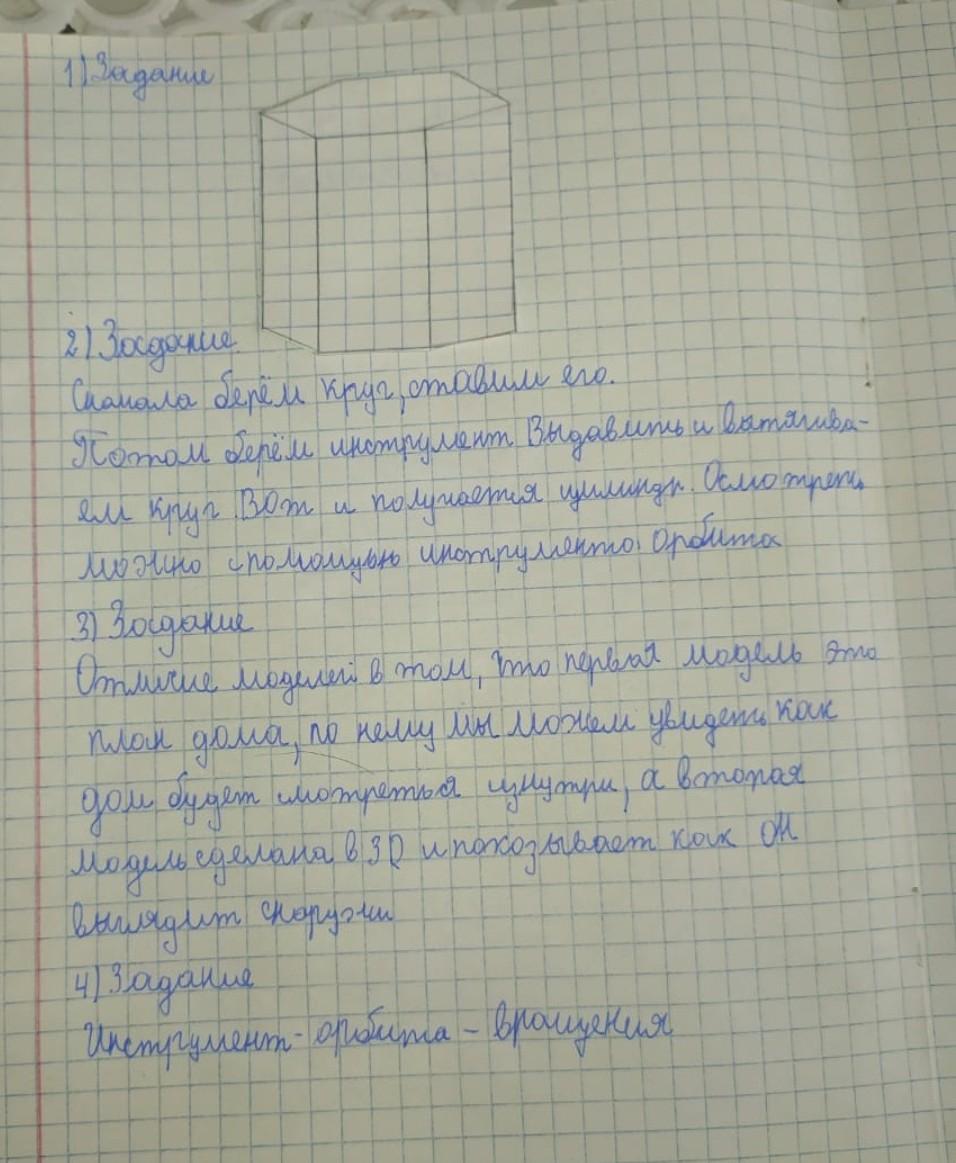 1) Задание
2) Задание.
Сначала берём круг, ставим его.
Потом берём инструмент Выдавить и вытягива-
ем круг. Вот и получается цилиндр. Осмотреть
можно с помощью инструмента орбита
3) Задание
Отличие моделей в том, что первая модель это
план дома, по нему мы можем увидеть как
дом будет смотреться изнутри, а вторая
модель сделана в 3D и показывает как он
выглядит снаружи
4) Задание
Инструмент - орбита - вращения